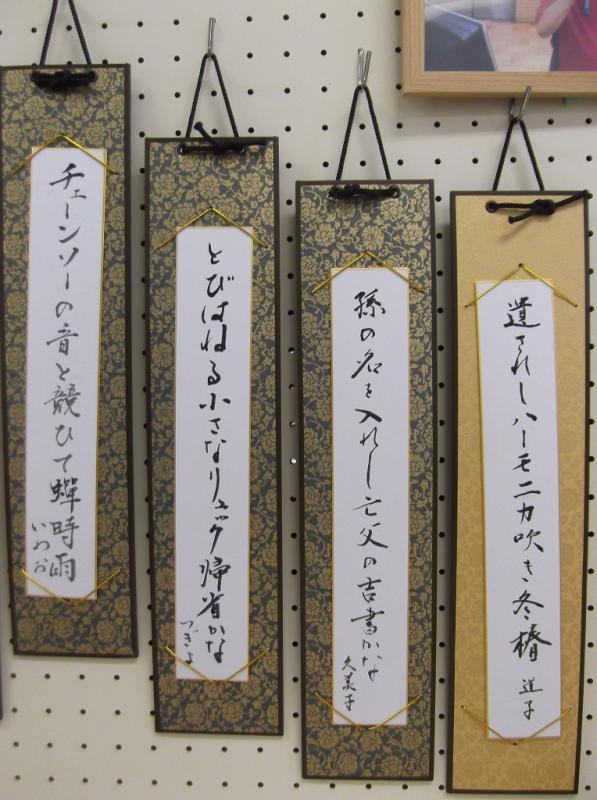 遺されしハーモニカ吹き冬椿
道子
孫の名を入れし亡父の吉書かな
久美子
とびはねる小さなリュック帰省かな
つぎよ
チェーンソーの音と競ひて蟬時雨
いわお